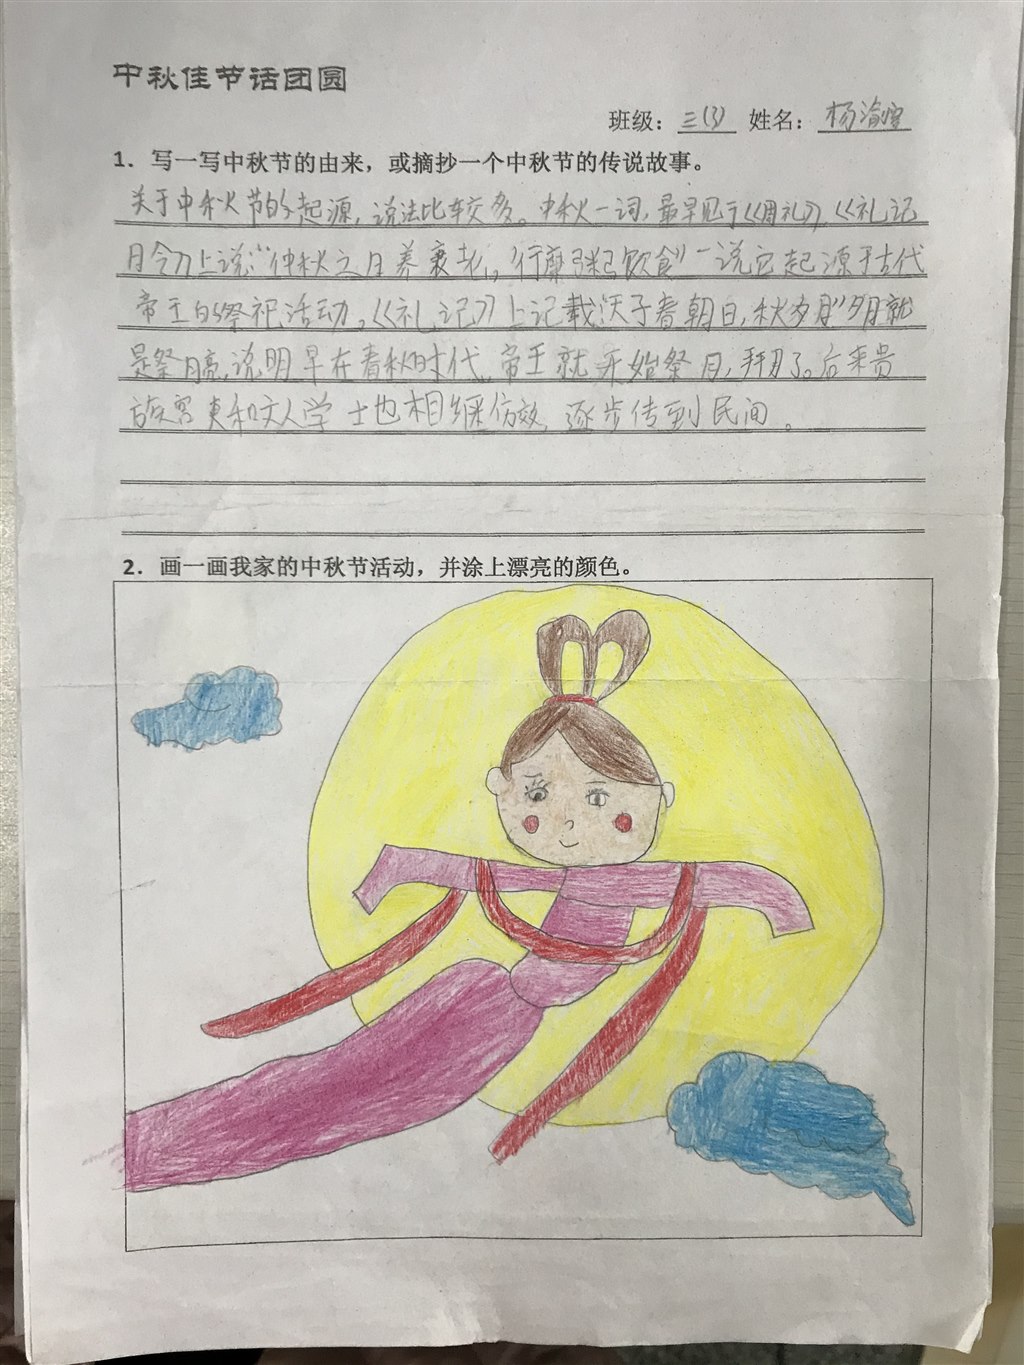 中秋佳节话团圆
班级：三(3) 姓名：杨渝
1．写一写中秋节的由来，或摘抄一个中秋节的传说故事。
关于中秋节的起源，说法比较多。中秋一词，最早见于《周礼》，《礼记
月令》上说：“仲秋之月养衰老，行糜粥饮食”一说它起源于古代
帝王的祭祀活动。《礼记》上记载“天子春朝日，秋夕月”夕月就
是祭月亮，说明早在春秋时代，帝王就开始祭月，拜月了。后来贵
族官吏和文人学士也相继仿效，逐步传到民间。
2．画一画我家的中秋节活动，并涂上漂亮的颜色。